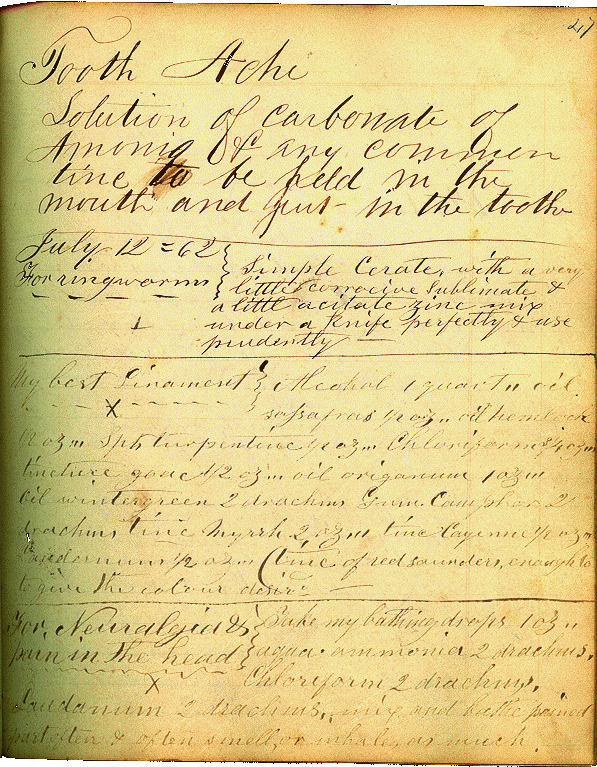 217
Tooth Ache
Solution of carbonate of
Amonia & any common
tinc to be held in the
mouth and put in the tooth
July 12 = 62
For ringworms
Simple Cerate, with a very
little corrocive Sublimate &
a little acitate zinc mix
under a Knife perfectly & use
prudently
My best Linament
X
Alcohol 1 quart " oil
sassafras 1/2 oz " oil hemlock
1/2 oz " Spts turpentine 1/2 oz " Chloriform 3/4 oz "
tincture guac 1/2 oz " oil origanum 1 oz "
oil wintergreen 2 drachms Gum Camphor 2
drachms tinc Myrrh 2 oz " tinc Cayenne 1/2 oz "
Laudanum 1/2 oz " (tinc of red saunders, enough to
to give the colour desir
For Neuralgia &
pain in the head
X
Take my bathing drops 1 oz "
aqua ammonia 2 drachms,
Chloriform 2 drachms,
Laudanum 2 drachms, mix and bathe pained
part often & often smell, or inhale, as much